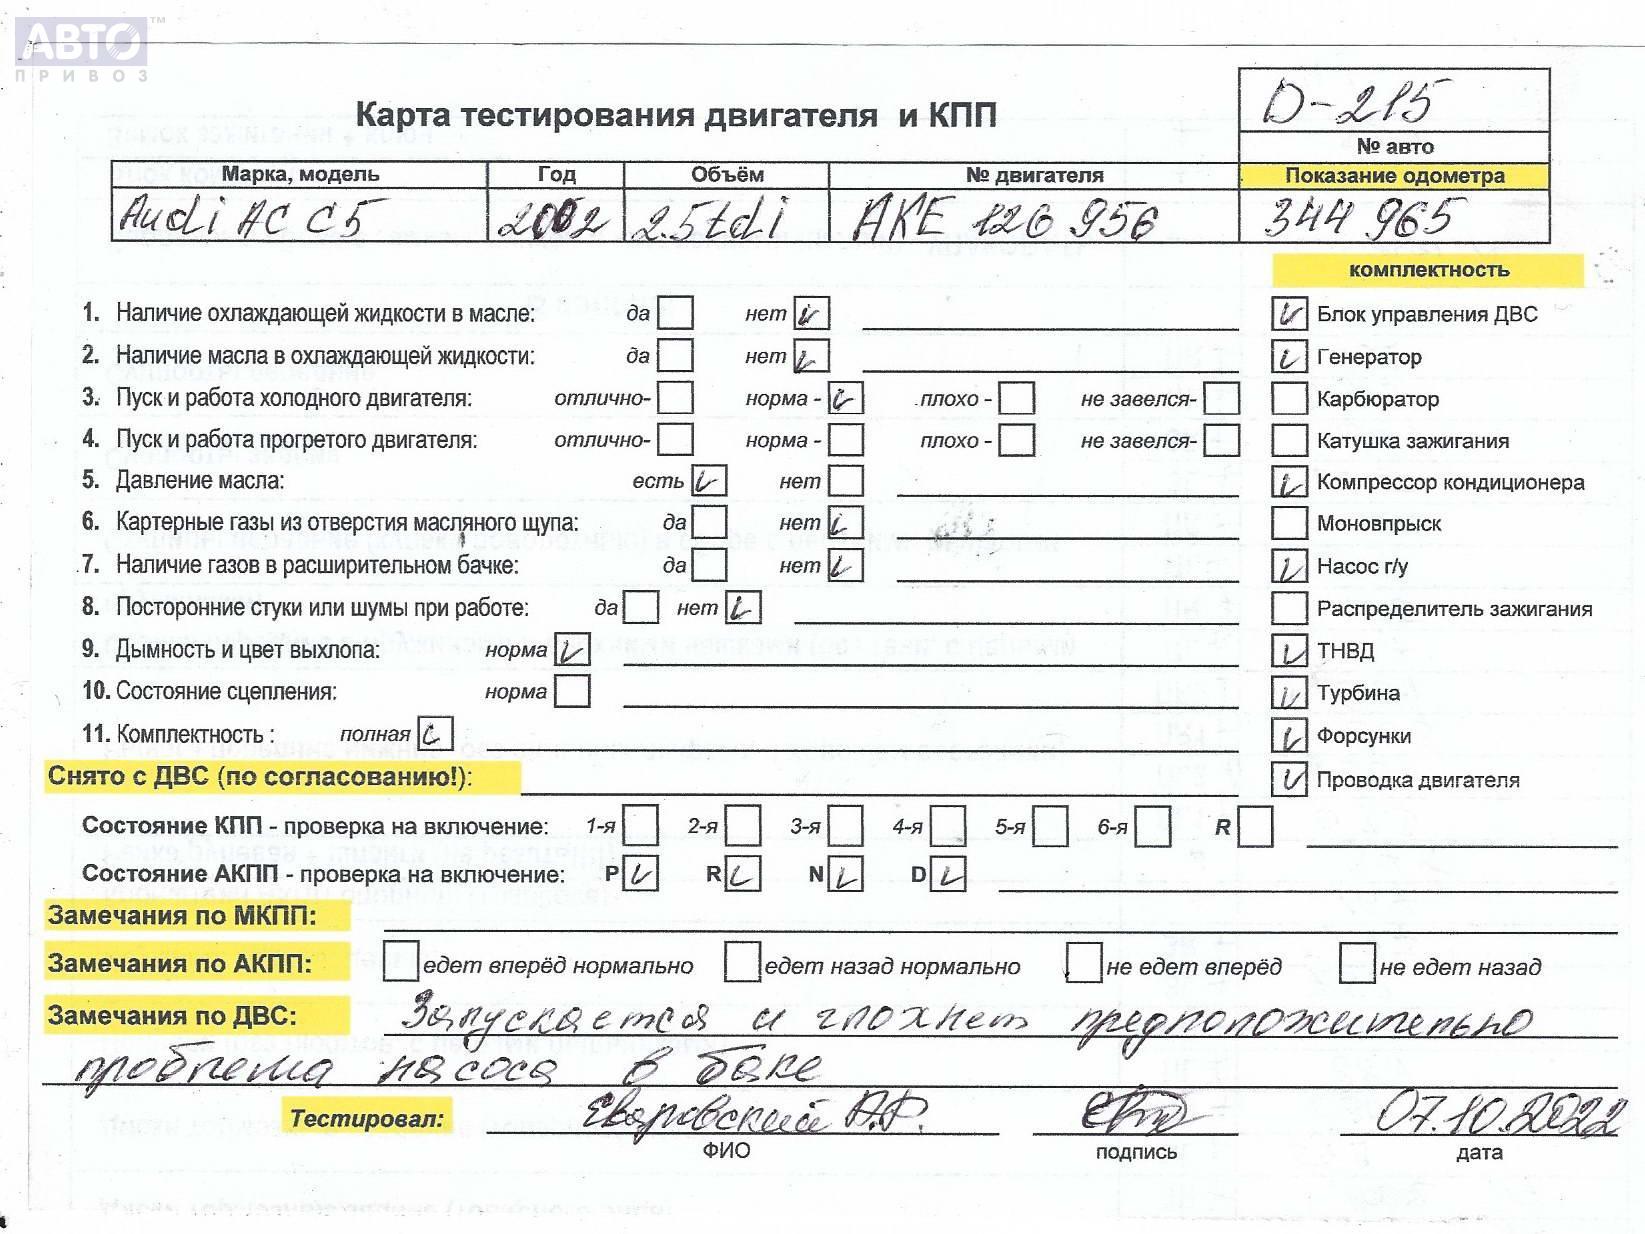 АВТО™
ПРИВОЗ
Карта тестирования двигателя и КПП
D-215
№ авто
Марка, модель Год Объём № двигателя Показание одометра
Audi AC C5 2002 2.5tdi AKE 126 956 344 965
комплектность
1. Наличие охлаждающей жидкости в масле: да нет Блок управления ДВС
2. Наличие масла в охлаждающей жидкости: да нет Генератор
3. Пуск и работа холодного двигателя: отлично- норма - плохо - не завелся- Карбюратор
4. Пуск и работа прогретого двигателя: отлично- норма - плохо - не завелся- Катушка зажигания
5. Давление масла: есть нет Компрессор кондиционера
6. Картерные газы из отверстия масляного щупа: да нет Моновпрыск
7. Наличие газов в расширительном бачке: да нет Насос г/у
8. Посторонние стуки или шумы при работе: да нет Распределитель зажигания
9. Дымность и цвет выхлопа: норма ТНВД
10. Состояние сцепления: норма Турбина
11. Комплектность : полная Форсунки
Снято с ДВС (по согласованию!): Проводка двигателя
Состояние КПП - проверка на включение: 1-я 2-я 3-я 4-я 5-я 6-я R
Состояние АКПП - проверка на включение: P R N D
Замечания по МКПП:
Замечания по АКПП: едет вперёд нормально едет назад нормально не едет вперёд не едет назад
Замечания по ДВС: Запускается и глохнет предположительно
проблема насоса в баке
Тестировал: А.Р. 07.10.2022
ФИО подпись дата